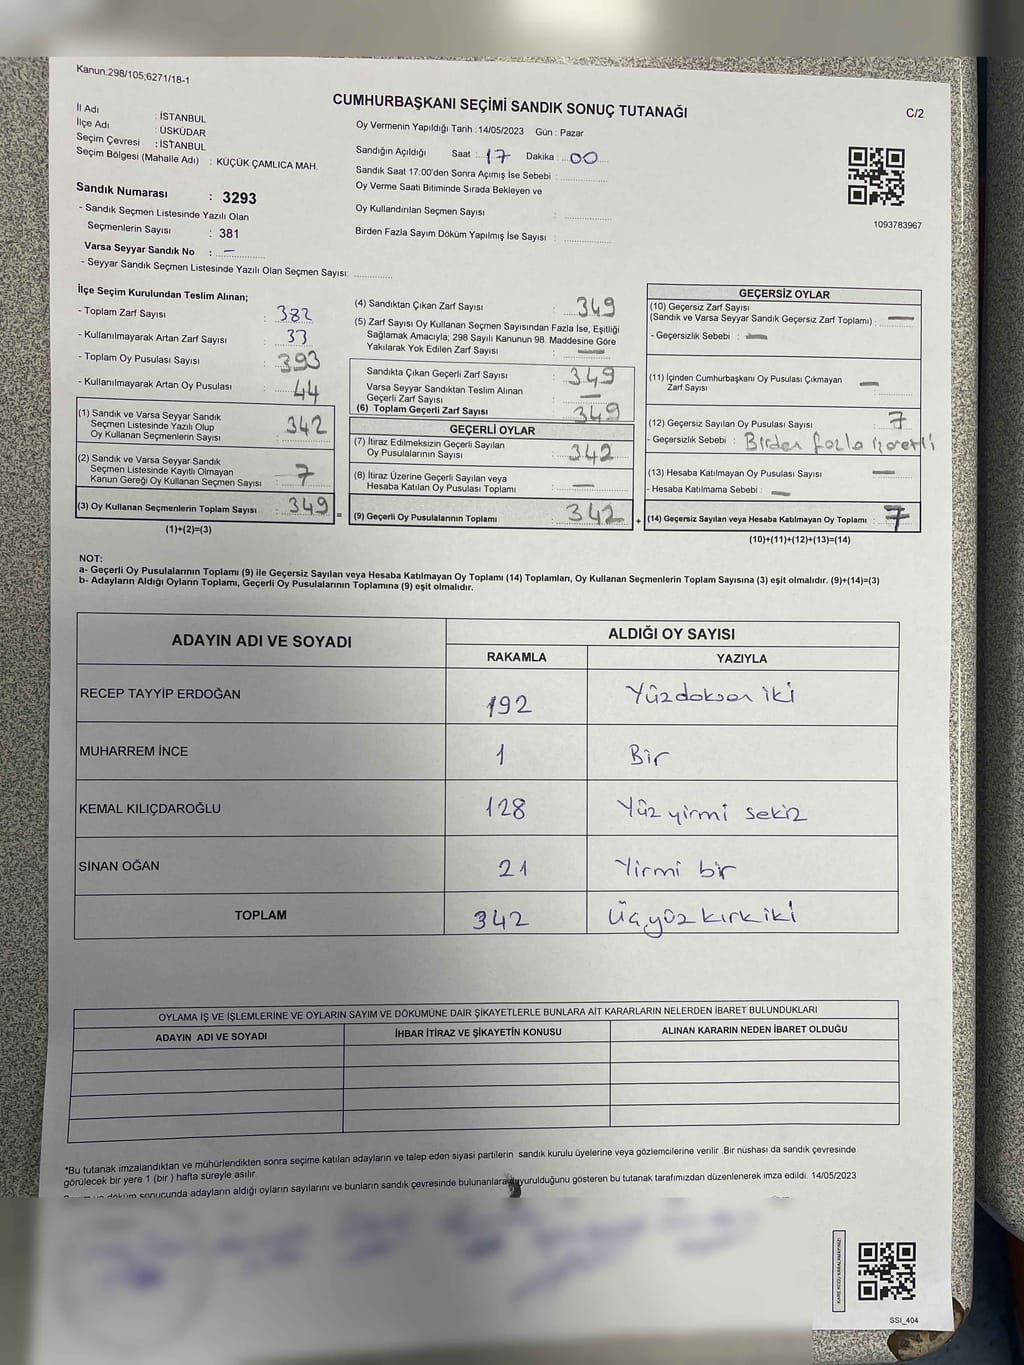 Kanun:298/105;6271/18-1
CUMHURBAŞKANI SEÇİMİ SANDIK SONUÇ TUTANAĞI
C/2
İl Adı : İSTANBUL
İlçe Adı : ÜSKÜDAR
Seçim Çevresi : İSTANBUL
Seçim Bölgesi (Mahalle Adı) : KÜÇÜK ÇAMLICA MAH.
Sandık Numarası : 3293
- Sandık Seçmen Listesinde Yazılı Olan
Seçmenlerin Sayısı : 381
Varsa Seyyar Sandık No : –
- Seyyar Sandık Seçmen Listesinde Yazılı Olan Seçmen Sayısı:
Oy Vermenin Yapıldığı Tarih : 14/05/2023 Gün : Pazar
Sandığın Açıldığı Saat : 17 Dakika : 00
Sandık Saat 17:00'den Sonra Açımış İse Sebebi :
Oy Verme Saati Bitiminde Sırada Bekleyen ve
Oy Kullandırılan Seçmen Sayısı :
Birden Fazla Sayım Döküm Yapılmış İse Sayısı :
1093783967
İlçe Seçim Kurulundan Teslim Alınan;
- Toplam Zarf Sayısı : 382
- Kullanılmayarak Artan Zarf Sayısı : 33
- Toplam Oy Pusulası Sayısı : 393
- Kullanılmayarak Artan Oy Pusulası : 44
(1) Sandık ve Varsa Seyyar Sandık
Seçmen Listesinde Yazılı Olup
Oy Kullanan Seçmenlerin Sayısı : 342
(2) Sandık ve Varsa Seyyar Sandık
Seçmen Listesinde Kayıtlı Olmayan
Kanun Gereği Oy Kullanan Seçmen Sayısı : 7
(3) Oy Kullanan Seçmenlerin Toplam Sayısı : 349 =
(1)+(2)=(3)
(4) Sandıktan Çıkan Zarf Sayısı : 349
(5) Zarf Sayısı Oy Kullanan Seçmen Sayısından Fazla İse, Eşitliği
Sağlamak Amacıyla; 298 Sayılı Kanunun 98. Maddesine Göre
Yakılarak Yok Edilen Zarf Sayısı : —
Sandıkta Çıkan Geçerli Zarf Sayısı : 349
Varsa Seyyar Sandıktan Teslim Alınan
Geçerli Zarf Sayısı : —
(6) Toplam Geçerli Zarf Sayısı : 349
GEÇERLİ OYLAR
(7) İtiraz Edilmeksizin Geçerli Sayılan
Oy Pusulalarının Sayısı : 342
(8) İtiraz Üzerine Geçerli Sayılan veya
Hesaba Katılan Oy Pusulası Toplamı : —
(9) Geçerli Oy Pusulalarının Toplamı : 342 +
GEÇERSİZ OYLAR
(10) Geçersiz Zarf Sayısı
(Sandık ve Varsa Seyyar Sandık Geçersiz Zarf Toplamı) : —
- Geçersizlik Sebebi : —
(11) İçinden Cumhurbaşkanı Oy Pusulası Çıkmayan —
Zarf Sayısı
(12) Geçersiz Sayılan Oy Pusulası Sayısı : 7
- Geçersizlik Sebebi : Birden fazla işaretli
(13) Hesaba Katılmayan Oy Pusulası Sayısı : —
- Hesaba Katılmama Sebebi : —
(14) Geçersiz Sayılan veya Hesaba Katılmayan Oy Toplamı : 7
(10)+(11)+(12)+(13)=(14)
NOT:
a- Geçerli Oy Pusulalarının Toplamı (9) ile Geçersiz Sayılan veya Hesaba Katılmayan Oy Toplamı (14) Toplamları, Oy Kullanan Seçmenlerin Toplam Sayısına (3) eşit olmalıdır. (9)+(14)=(3)
b- Adayların Aldığı Oyların Toplamı, Geçerli Oy Pusulalarının Toplamına (9) eşit olmalıdır.
ADAYIN ADI VE SOYADI
ALDIĞI OY SAYISI
RAKAMLA YAZIYLA
RECEP TAYYİP ERDOĞAN 192 Yüzdoksan iki
MUHARREM İNCE 1 Bir
KEMAL KILIÇDAROĞLU 128 Yüz yirmi sekiz
SİNAN OĞAN 21 Yirmi bir
TOPLAM 342 Üçyüz kırk iki
OYLAMA İŞ VE İŞLEMLERİNE VE OYLARIN SAYIM VE DÖKÜMÜNE DAİR ŞİKAYETLERLE BUNLARA AİT KARARLARIN NELERDEN İBARET BULUNDUKLARI
ADAYIN ADI VE SOYADI İHBAR İTİRAZ VE ŞİKAYETİN KONUSU ALINAN KARARIN NEDEN İBARET OLDUĞU
*Bu tutanak imzalandıktan ve mühürlendikten sonra seçime katılan adayların ve talep eden siyasi partilerin sandık kurulu üyelerine veya gözlemcilerine verilir .Bir nüshası da sandık çevresinde
görülecek bir yere 1 (bir ) hafta süreyle asılır.
sonucunda adayların aldığı oyların sayılarını ve bunların sandık çevresinde bulunanlara duyurulduğunu gösteren bu tutanak tarafımızdan düzenlenerek imza edildi. 14/05/2023
SSI_404